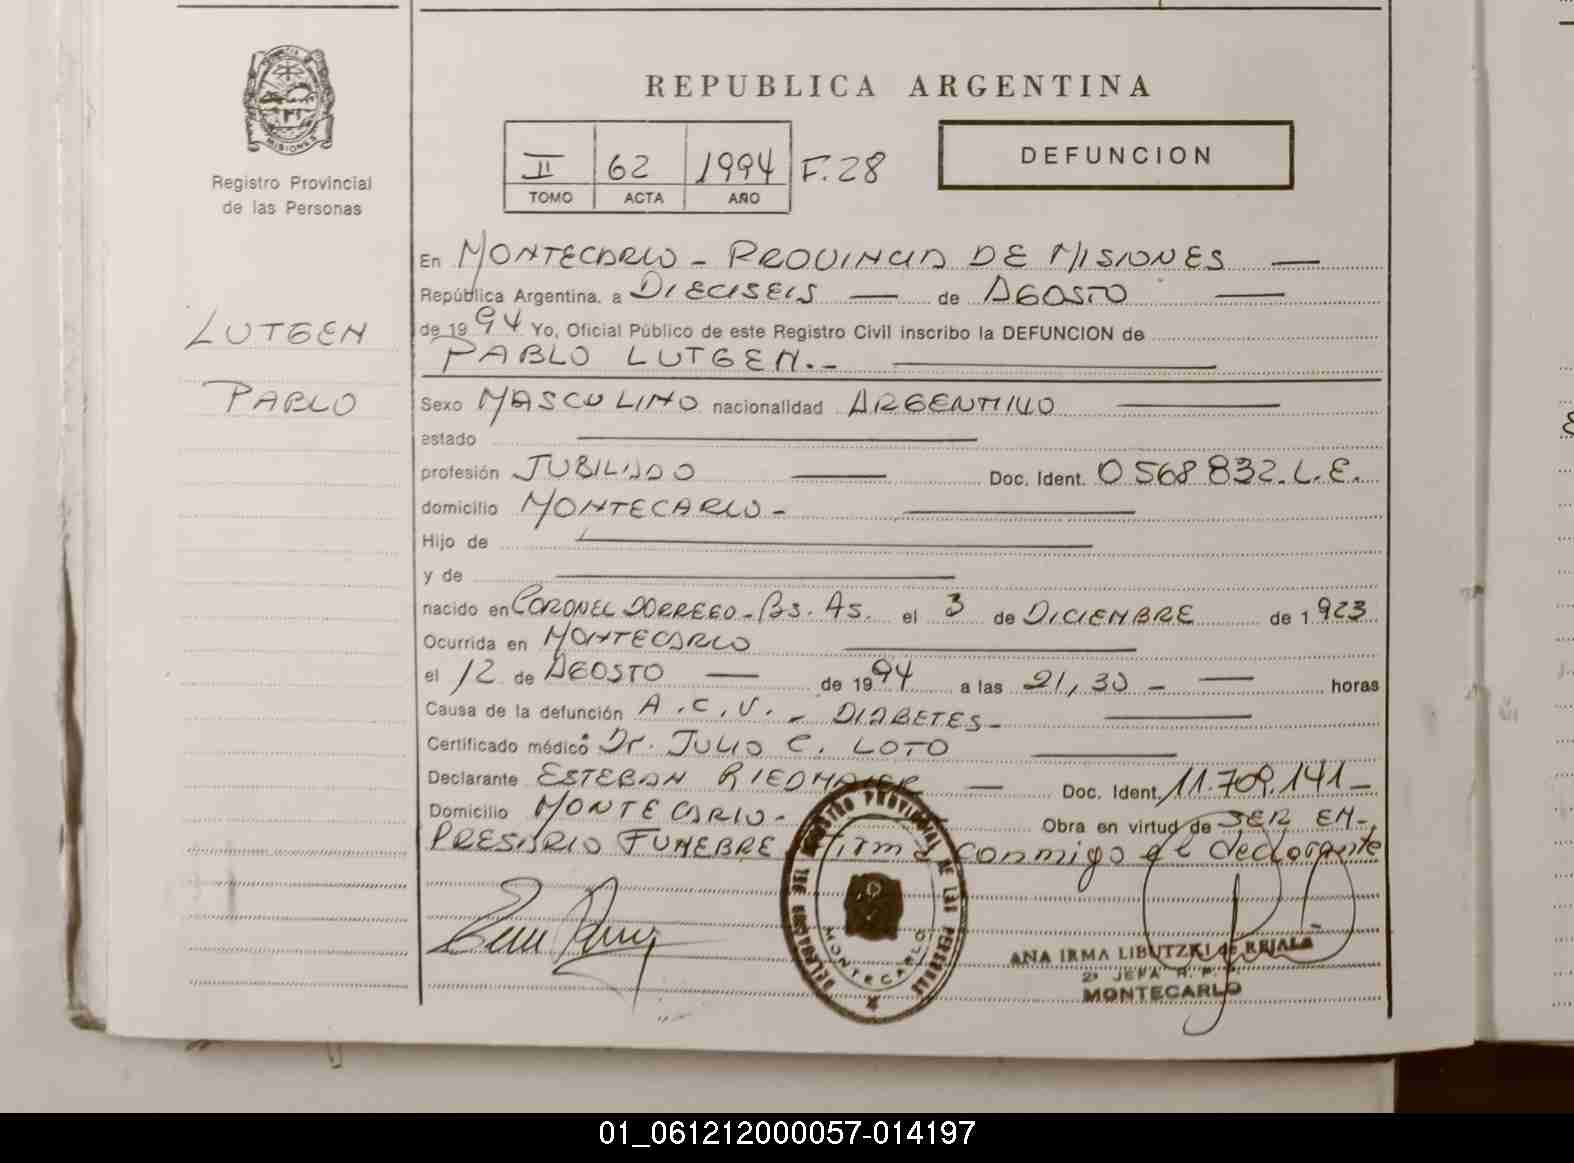 PROVINCIA DE
MISIONES
Registro Provincial
de las Personas
LUTGEN
PABLO
REPUBLICA ARGENTINA
II 62 1994 F.28
TOMO ACTA AÑO
DEFUNCION
En MONTECARLO - PROVINCIA DE MISIONES
República Argentina, a DIECISEIS de AGOSTO
de 1994 Yo, Oficial Público de este Registro Civil inscribo la DEFUNCION de
PABLO LUTGEN.-
Sexo MASCULINO nacionalidad ARGENTINO
estado
profesión JUBILADO Doc. Ident. 0568832.L.E.
domicilio MONTECARLO -
Hijo de
y de
nacido en CORONEL DORREGO - Bs. As. el 3 de DICIEMBRE de 1923
Ocurrida en MONTECARLO
el 12 de AGOSTO de 1994 a las 21,30 - horas
Causa de la defunción A.C.V. - DIABETES -
Certificado médico Dr. JULIO C. LOTO
Declarante ESTEBAN RIEDMAIER Doc. Ident. 11.709.141 -
Domicilio MONTECARLO - Obra en virtud de SER EM-
PRESARIO FUNEBRE firma conmigo el declarante
DELEGACION DEL REGISTRO PROVINCIAL DE LAS PERSONAS
MONTECARLO
ANA IRMA LIBUTZKI de REJALA
2ª JEFA R. P. P.
MONTECARLO
01_061212000057-014197